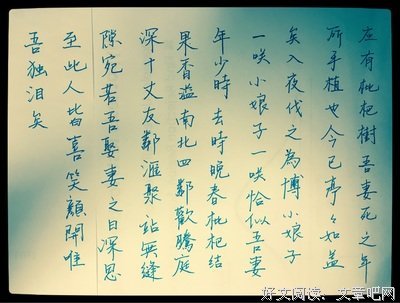 庭有枇杷樹吾妻死之年
所手植也今已亭々如蓋
矣入夜伐之為博小娘子
一咲小娘子一咲恰似吾妻
年少時 去時晚春枇杷结
果香溢南北四鄰歡騰庭
深十丈友鄰滙聚跕無縫
隙宛若吾娶妻之日深思
至此人皆喜笑顏開唯
吾独泪矣
好文阅读、文章吧网